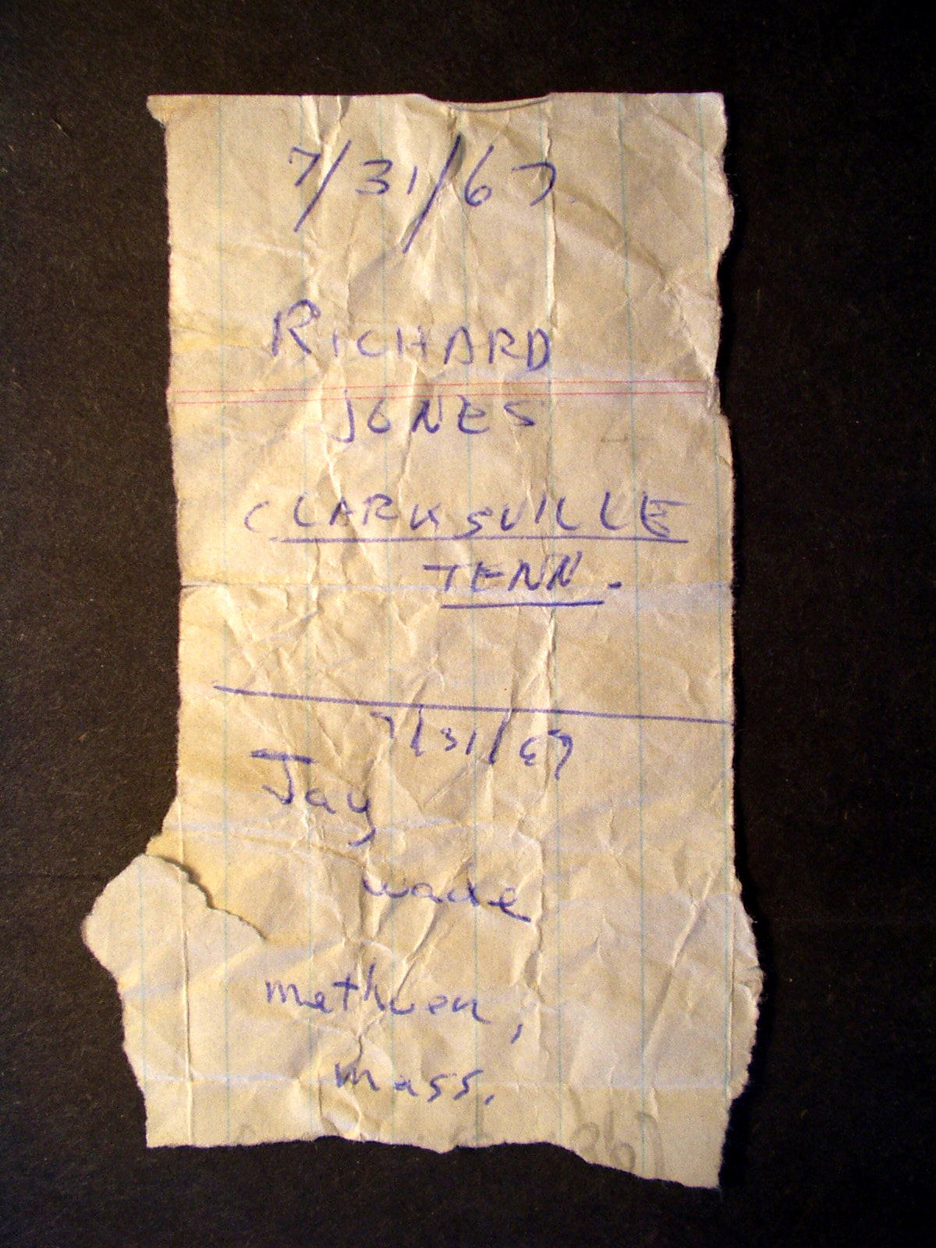 7/31/67
RICHARD
JONES
CLARKSVILLE
TENN.
7/31/67
Jay
wade
methuen,
mass.